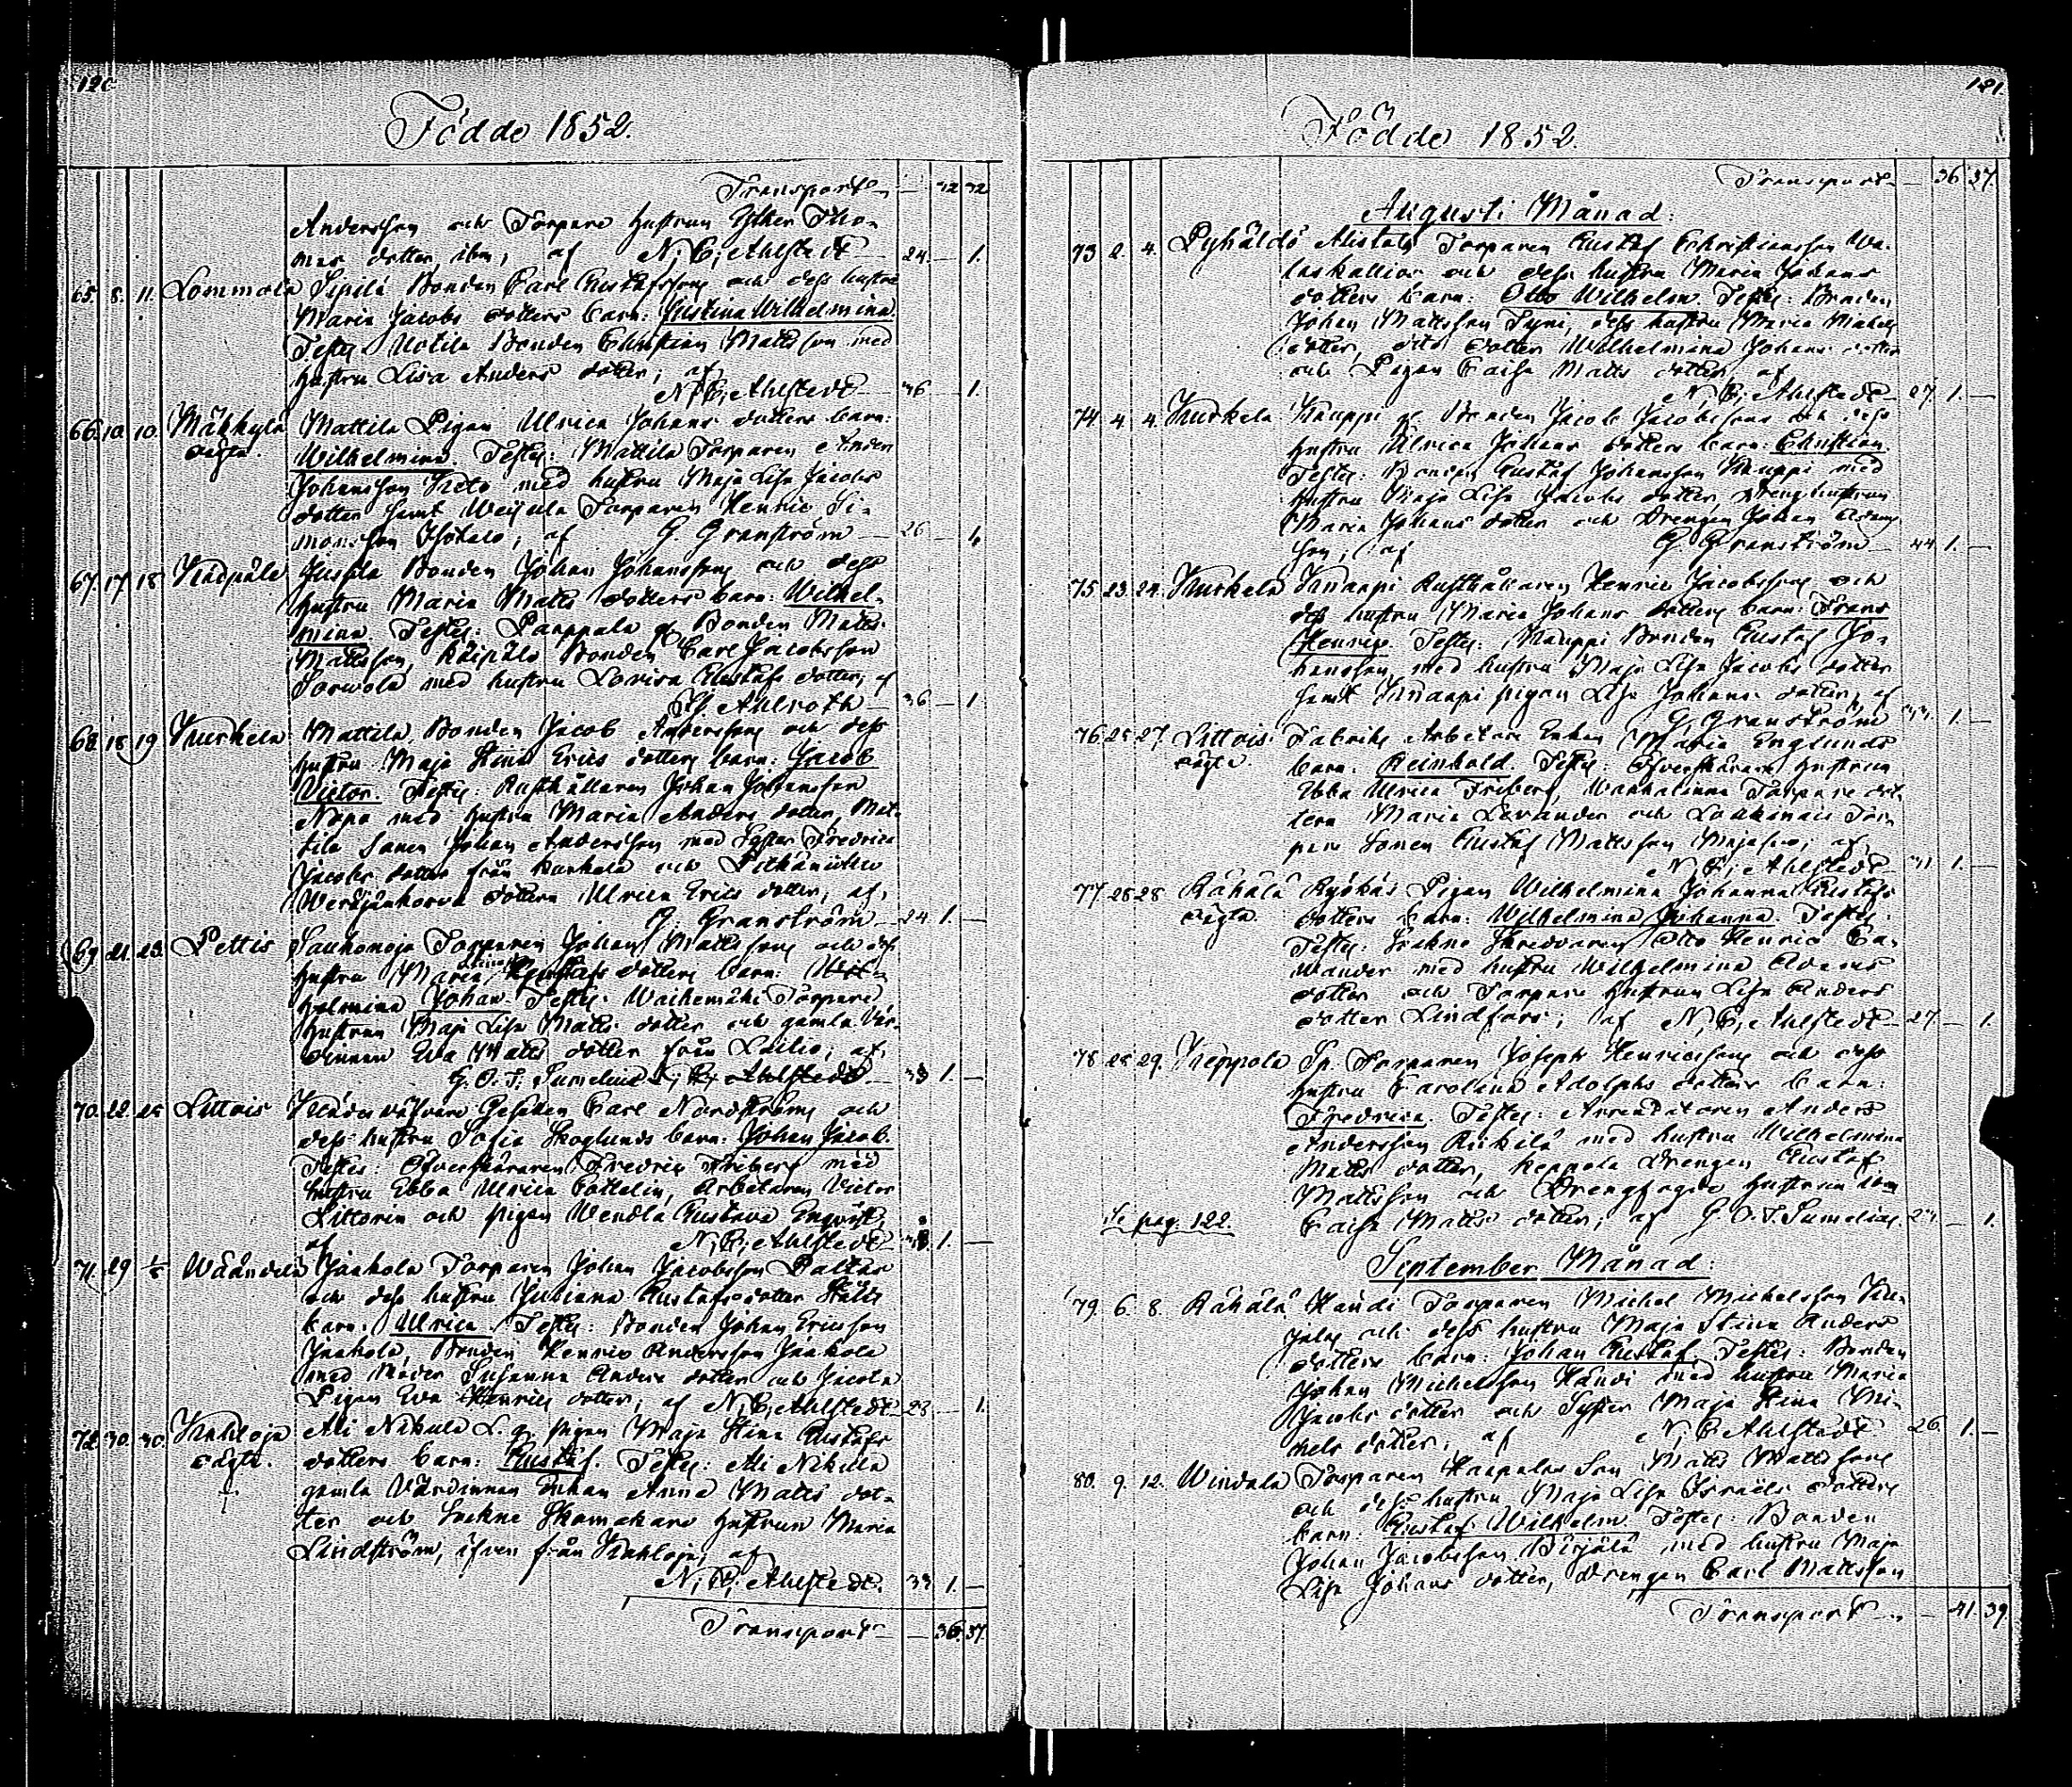 120
Födde 1852.
Transport — 32 32
Andersson och Torpare hustrun Esther Tho-
mas dotter, ibm, af N; C; Ahlstedt 24. — 1.
65. 8. 11. Lommola Sipilä Bonden Carl Gustafsson och dess hustru
Maria Jacobs dotters barn: Justina Wilhelmina.
Testes: Uotila Bonden Christian Mattsson med
hustru Lisa Anders dotter; af
N; C; Ahlstedt 36 — 1.
66. 10. 10. Mäkkylä Mattila Pigan Ulrica Johans dotters barn:
oägta. Wilhelmina. Testes: Mattila Torparen Anders
Johansson med hustru Maja Lisa Jacobs
dotter samt Torparen Henric Si-
monsson Isotalo, af G. Granström 26 — 1
67. 17. 18. Bonden Johan Johansson och dess
hustru Maria Matts dotters barn: Wilhel-
mina. Testes: Bonden Matts
Mattsson, Bonden Carl Jacobsson
med hustru Lovisa Gustafs dotter, af
Ahlroth 36 — 1.
68. 18. 19 Kurkela Mattila Bonden Jacob Andersson och dess
hustru Maja Stina Erics dotters barn: Jacob
Victor. Testes: Rusthållaren Johan Johansson
med hustru Maria Anders dotter, Mat-
tila Sonen Johan Andersson med Syster Fredrica
Jacobs dotter från och
dottern Ulrica Erics dotter, af,
G. Granström 24. 1. —
69. 21. 23. Pettis Torparen Johan Mattsson och dess
hustru Maria Gustafs dotters barn: Wil-
helmina Johan. Testes: Torpare
hustrun Maja Lisa Matts dotter och gamla Vär-
dinnan Eva Matts dotter från; af,
G. O. F. Sumelius N; C; Ahlstedt 33 1. —
70. 22. 25 Littois Gesällen Carl Nordström och
dess hustru Sofia Skoglunds barn: Johan Jacob.
Testes: Öfverskäraren Fredric Friberg med
hustru Ebba Ulrica, Arbetaren Victor
Littorin och pigan Wendla Gustava Engqvist,
af N; C; Ahlstedt 1. —
71. 29 1/8 Wäänälä Jaakola Torparen Johan Jacobsson
och dess hustru Juliana Gustafsdotter
barn: Ulrica. Testes: Bonden Johan Ericsson
Jaakola, Bonden Henric Andersson Jaakola
med Moder Susanna Anders dotter och
Pigan Eva Henrics dotter, af N; C; Ahlstedt 28 — 1.
72. 30. 30. Kukkoja Ali Nikula pigan Maja Stina Gustafs
oägta. dotters barn: Gustaf. Testes: Ali Nikula
gamla Värdinnan Enkan Anna Matts dot-
ter och Sockne Skomakare hustrun Maria
Lindström, från, af
N; C; Ahlstedt. 33 1. —
Transport — 36. 37.
121.
Födde 1852.
Transport — 36. 37.
Augusti Månad:
73 2. 4. Pyhältö Alistalo Torparen Gustaf Christiansson Wa-
laskallio och dess hustru Maria Johans
dotters barn: Otto Wilhelm. Testes: Bonden
Johan Mattsson, dess hustru Maria
dotter, dotter Wilhelmina Johans dotter
och Pigan Caisa Matts dotter, af
N; C; Ahlstedt 27. 1. —
74 4 4. Kurkela Knaappi Bonden Jacob Jacobssons och dess
hustru Ulrica Johans dotters barn: Christian.
Testes: Bonden Gustaf Johansson med
hustru Maja Lisa Jacobs dotter, Dreng hustrun
Maria Johans dotter och Drengen Johan Adams
son; af G. Granström 44 1. —
75 23. 24. Kurkela Knaapi Rusthållaren Henric Jacobsson och
dess hustru Maria Johans dotters barn: Frans
Henric. Testes: Bonden Gustaf Jo-
hansson med hustru Maja Lisa Jacobs dotter
samt Knaapi pigan Lisa Johans dotter, af
G. Granström 1. —
76 25 27. Littois Fabriks Arbetare Enkan Maria Englunds
oägta. barn: Reinhold. Testes: Öfverskärare hustrun
Ebba Ulrica Friberg, Torpare dot-
tern Maria Levander och Tor-
pare Sonen Gustaf Mattsson; af,
N; C; Ahlstedt 1. —
77. 28 28 Rähälä Pigan Wilhelmina Johanna Gustafs
oägta. dotters barn: Wilhelmina Johanna. Testes:
Testes: Sockne Skreddaren Otto Henric Ca-
wander med hustru Wilhelmina Adams
dotter och Torpare hustrun Lisa Anders
dotter Lindfors; af N; C; Ahlstedt 27. — 1.
78 28 29. Keppola Torparen Joseph Henricsson och dess
hustru Carolina Adolphs dotters barn:
Fredrica. Testes: Arrendatoren Anders
Andersson med hustru Wilhelmina
Matts dotter, Keppola Drengen Gustaf
Mattsson och Drengfogde hustrun
Se pag. 122. Caisa Matts dotter; af G. O. F. Sumelius. — 1.
September Månad:
79. 6. 8. Rähälä Handi Torparen Michel Michelsson
och dess hustru Maja Stina Anders
dotters barn: Johan Gustaf. Testes: Bonden
Johan Michelsson Handi med hustru Maria
Jacobs dotter och Syster Maja Stina Mi-
chels dotter, af N; C Ahlstedt 26. 1. —
80. 9. 12. Windala Torparen Son Matts Mattsson
och dess hustru Maja Lisa Israels dotters
barn: Gustaf Wilhelm. Testes: Bonden
Johan Jacobsson med hustru Maja
Lisa Johans dotter, Drengen Carl Mattsson
Transport — 41. 39.